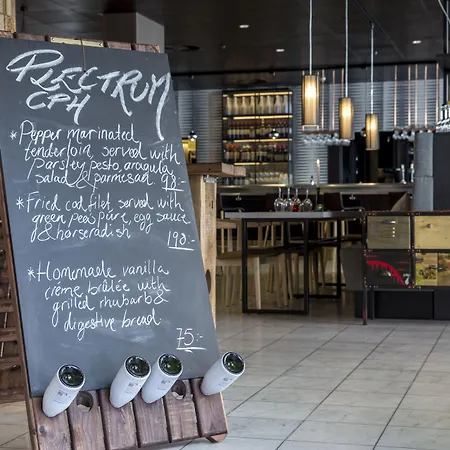 PLECTRUM
CPH
*Pepper marinated
tenderloin, served with
parsley pesto, arugula
salad & parmesad. 98.-
*Fried cod filet, served with
green pea pure, egg sauce
& horseradish
190.-
*Homemade vanilla
créme brûlée with
grilled rhubarb &
digestive bread.
75:-